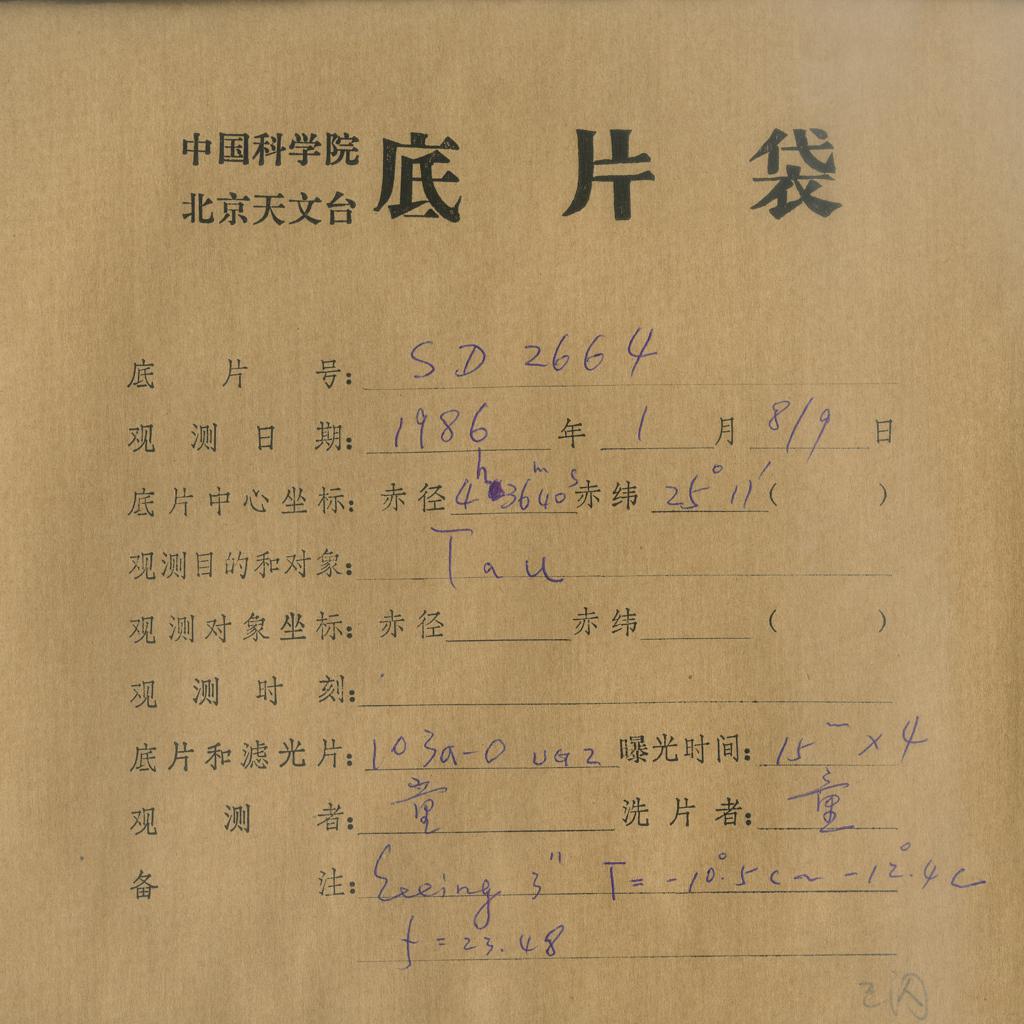 中国科学院
北京天文台
底片袋
底片号: SD 2664
观测日期: 1986 年 1 月 8/9 日
底片中心坐标: 赤径 4h 36m 40s 赤纬 25° 11′ ( )
观测目的和对象: Tau
观测对象坐标: 赤径 赤纬 ( )
观测时刻:
底片和滤光片: 103a-O UG2 曝光时间: 15m × 4
观测者: 童 洗片者: 童
备注: Seeing 3″ T = -10°.5 C ~ -12°.4 C
f = 23.48